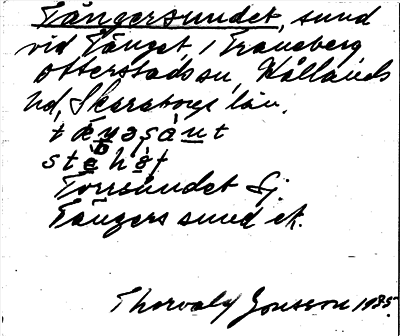 Tångersundet, sund
vid Tånget, i Traneberg
Otterstads sn, Kållands
hd, Skaraborgs län.
Torrsundet Sj.
Tångers sund ek.
Thorvald Jonsson 1935.